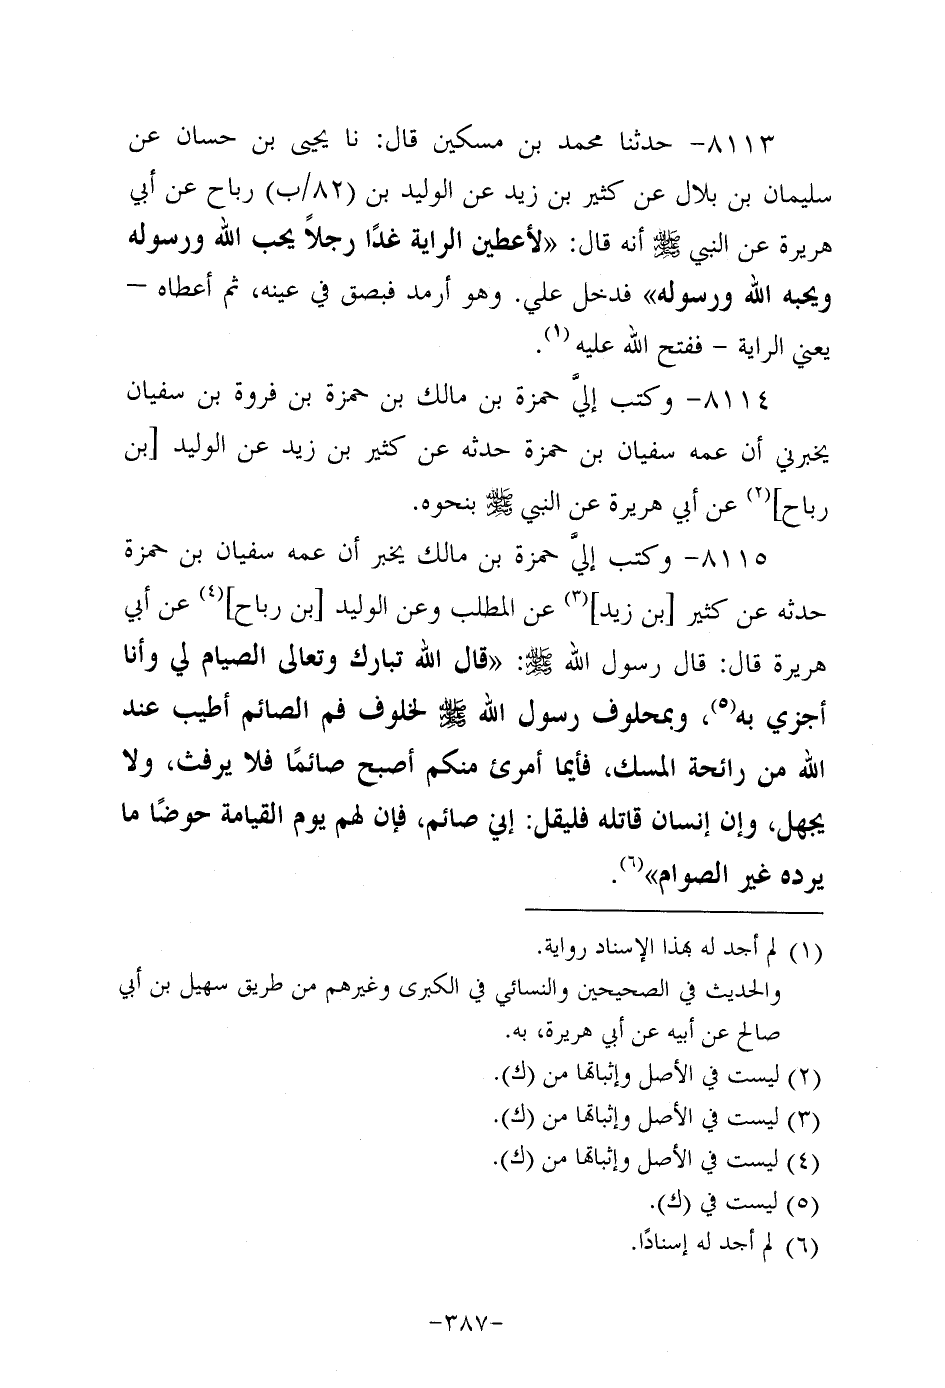 ٨١١٣- حدثنا محمد بن مسكين قال: نا يحيى بن حسان عن
سليمان بن بلال عن كثير بن زيد عن الوليد بن (٨٢/ب) رباح عن أبي
هريرة عن النبي ﷺ أنه قال: «لأعطين الراية غدًا رجلاً يحب الله ورسوله
ويحبه الله ورسوله» فدخل علي. وهو أرمد فبصق في عينه، ثم أعطاه –
يعني الراية – ففتح الله عليه(١).
٨١١٤- وكتب إليَّ حمزة بن مالك بن حمزة بن فروة بن سفيان
يخبرني أن عمه سفيان بن حمزة حدثه عن كثير بن زيد عن الوليد [بن
رباح](٢) عن أبي هريرة عن النبي ﷺ بنحوه.
٨١١٥- وكتب إليَّ حمزة بن مالك يخبر أن عمه سفيان بن حمزة
حدثه عن كثير [بن زيد](٣) عن المطلب وعن الوليد [بن رباح](٤) عن أبي
هريرة قال: قال رسول الله ﷺ: «قال الله تبارك وتعالى الصيام لي وأنا
أجزي به(٥)، وبمحلوف رسول الله ﷺ لخلوف فم الصائم أطيب عند
الله من رائحة المسك، فأيما أمرئ منكم أصبح صائمًا فلا يرفث، ولا
يجهل، وإن إنسان قاتله فليقل: إني صائم، فإن لهم يوم القيامة حوضًا ما
يرده غير الصوام»(٦).
(١) لم أجد له بهذا الإسناد رواية.
والحديث في الصحيحين والنسائي في الكبرى وغيرهم من طريق سهيل بن أبي
صالح عن أبيه عن أبي هريرة، به.
(٢) ليست في الأصل وإثباتها من (ك).
(٣) ليست في الأصل وإثباتها من (ك).
(٤) ليست في الأصل وإثباتها من (ك).
(٥) ليست في (ك).
(٦) لم أجد له إسنادًا.
-٣٨٧-